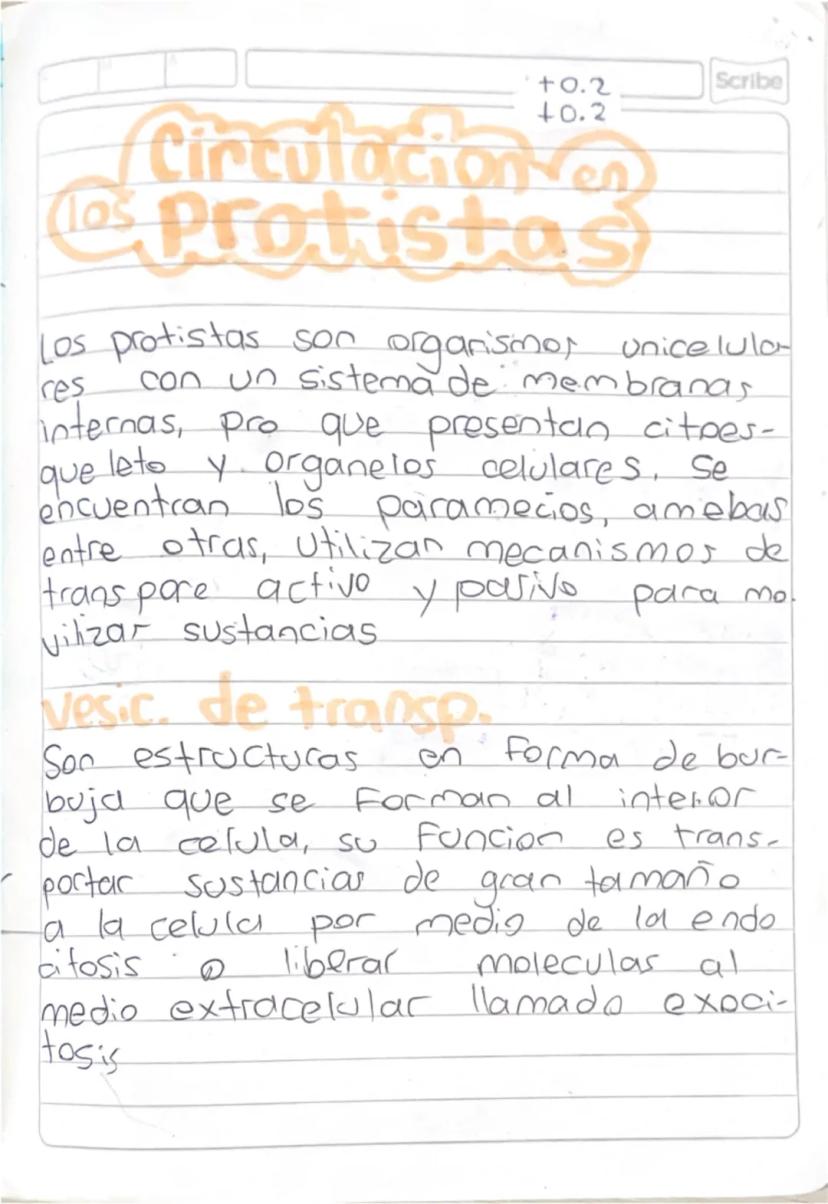 Scribe
+0.2
+0.2
Circulacion en
los Protistas
Los protistas son organismos unicelula-
res con un sistema de membranas
internas, pro que presentan citoes-
queleto y organelos celulares. Se
encuentran los paramecios, amebas
entre otras, utilizan mecanismos de
transpore activo y pasivo para mo.
vilizar sustancias
vesic. de transp.
Son estructuras en forma de bur-
buja que se forman al interior
de la celula, su funcion es trans-
portar sustancias de gran tamaño
a la celula por medio de la endo
citosis o liberar moleculas al
medio extracelular llamado exoci-
tosis